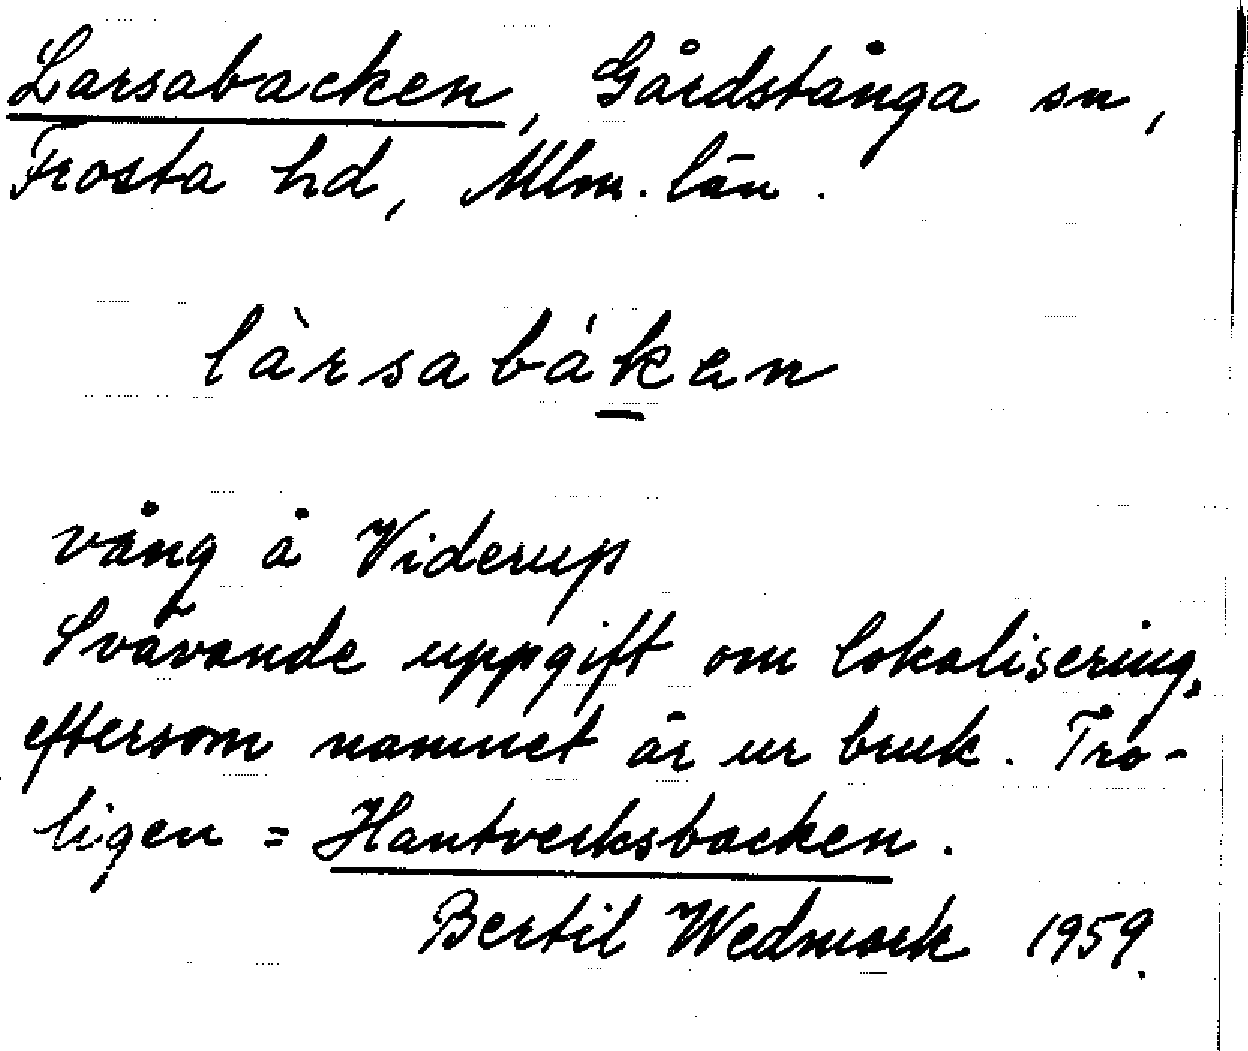 Larsabacken, Gårdstånga sn,
Frosta hd, Mlm. län.
làrsabák̠en
vång å Viderup
Svävande uppgift om lokalisering,
eftersom namnet är ur bruk. Tro-
ligen = Hantverksbacken.
Bertil Wedmark 1959.